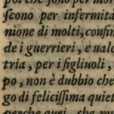 ſcono per infermità
nione di molti, confin
de i guerrieri, e ualo
tria, per i figliuoli,
po, non è dubbio che
go di felicißima quiet